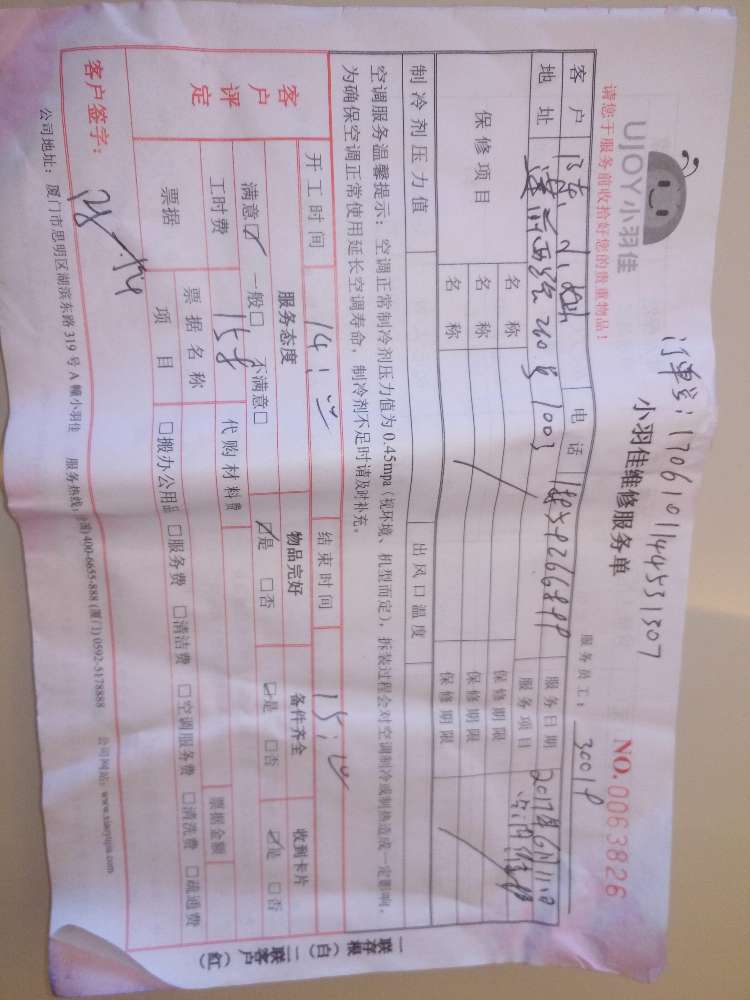 UJOY小羽佳
请您于服务前收拾好您的贵重物品!
订单号:170610114453 1307
小羽佳维修服务单
NO.0063826
服务员工: 3001
客户 小姐 电话 服务日期 2017年6月11日
地址 210号1003 服务项目
保修项目 名称 保修期限
名称 保修期限
名称 保修期限
制冷剂压力值 出风口温度
空调服务温馨提示:空调正常制冷剂压力值为0.45mpa(视环境、机型而定),拆装过程会对空调制冷或制热造成一定影响,
为确保空调正常使用延长空调寿命,制冷剂不足时请及时补充。
客户评定
开工时间 14: 结束时间 15:
服务态度 物品完好 备件齐全 收到卡片
满意☑ 一般□ 不满意□ ☑是 □否 ☑是 □否 ☑是 □否
工时费 158 代购材料费 票据金额
票据 票据名称
项目 □搬办公用品 □服务费 □清洁费 □空调服务费 □清洗费 □疏通费
客户签字:
公司地址:厦门市思明区湖滨东路319号A幢小羽佳 服务热线:(全国)400-6655-888 (厦门) 0592-5178888 公司网站:www.xiaoyujia.com
一联存根(白) 二联客户(红)